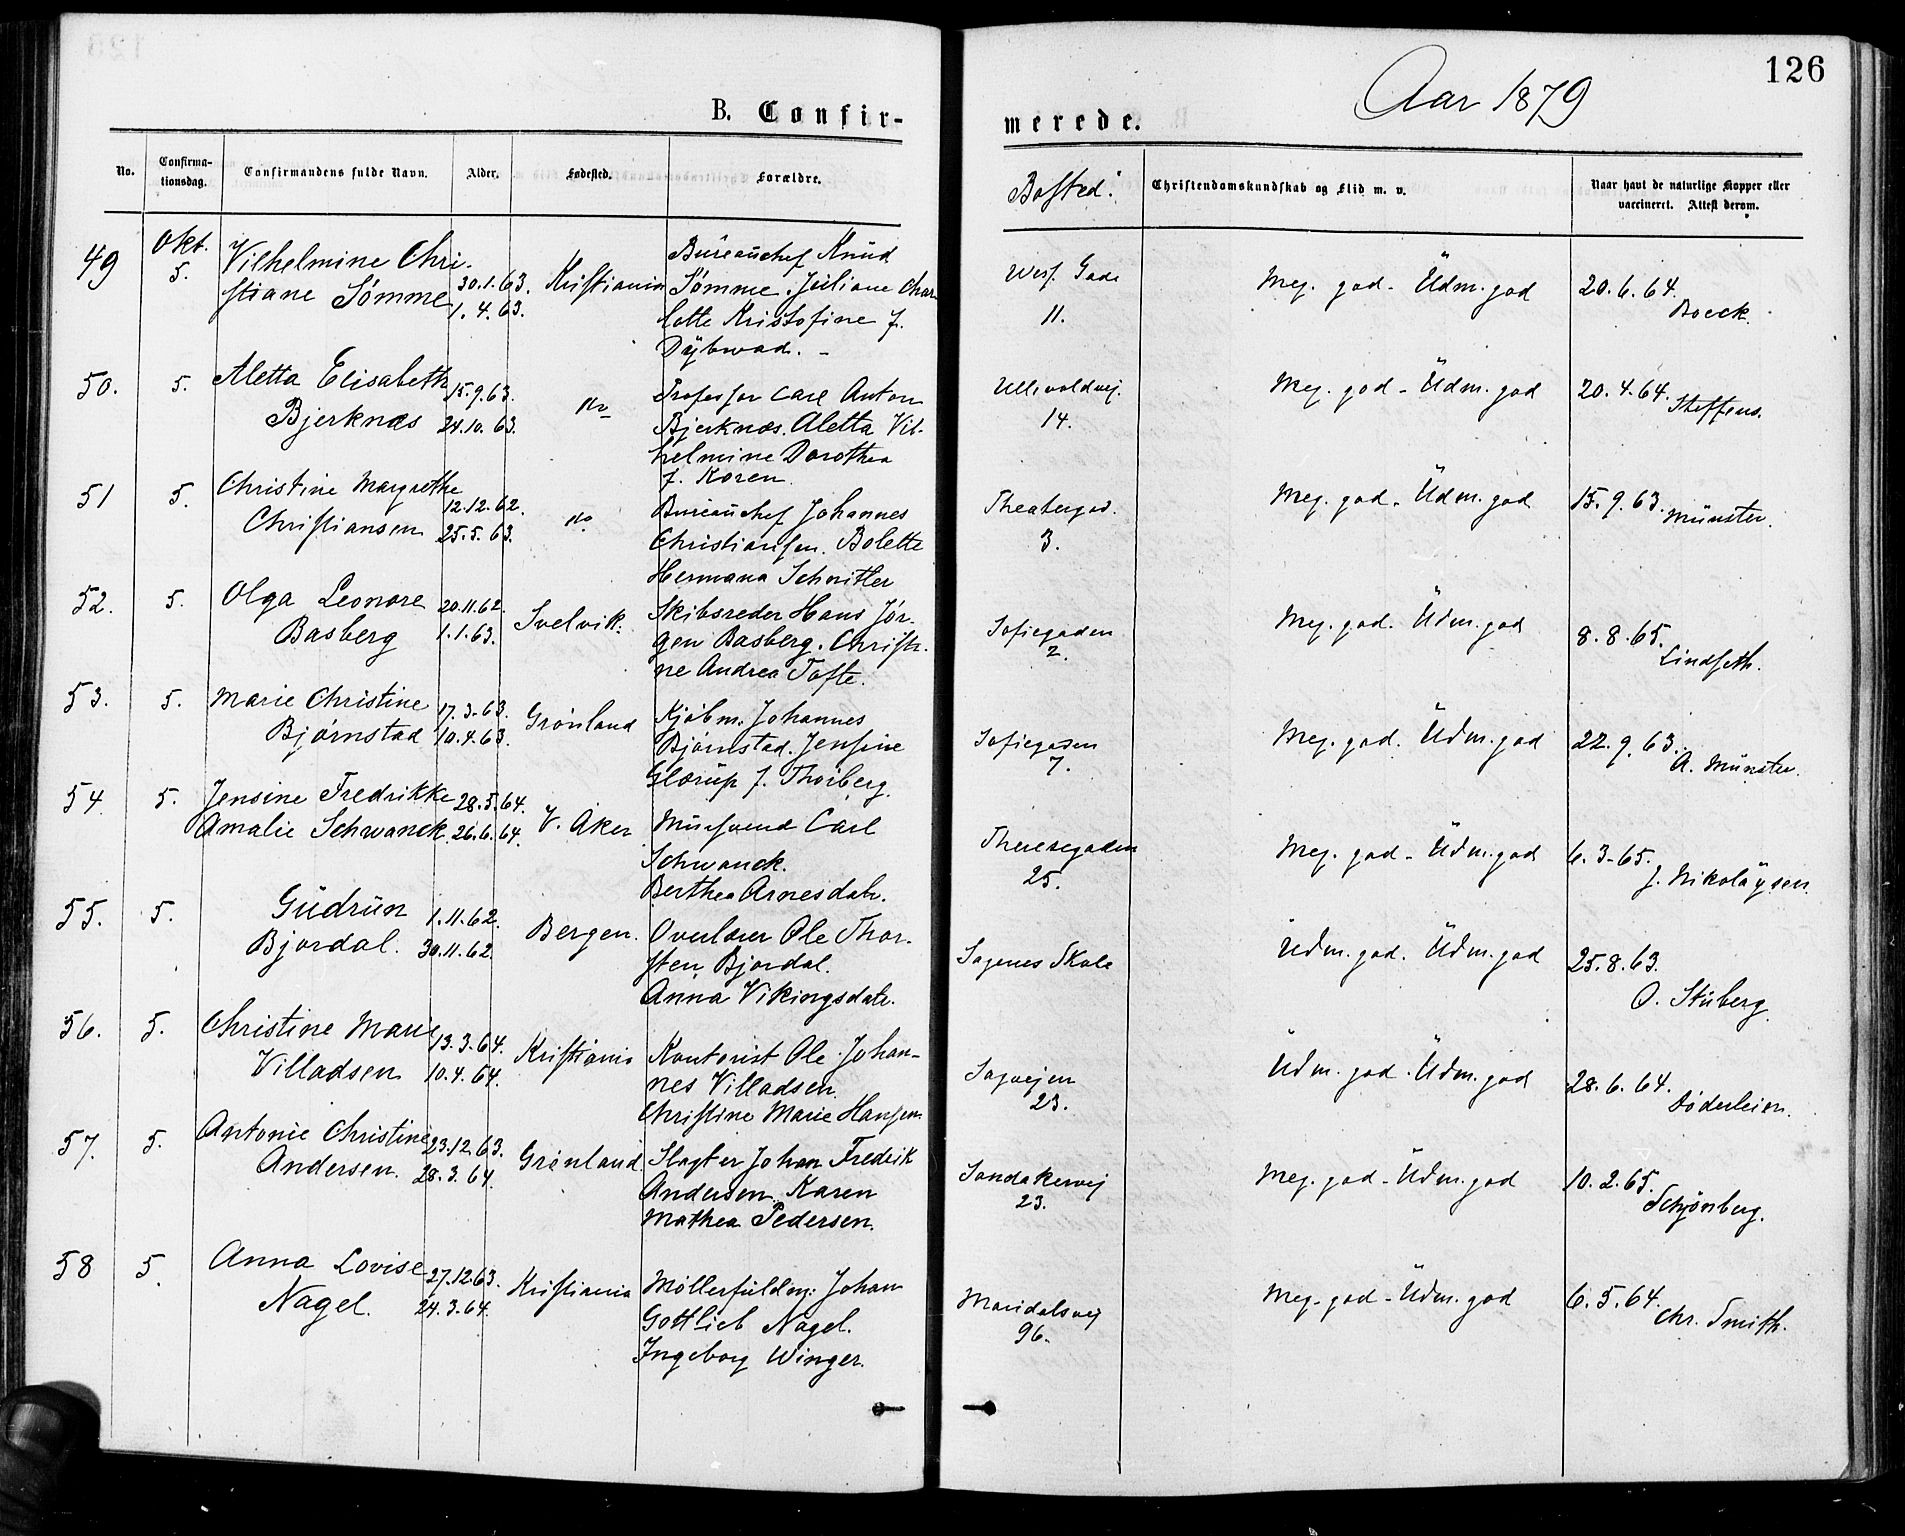 126
Aar 1879
B. Confir-
merede.
No.
Confirma-
tionsdag.
Confirmandens fulde Navn.
Alder.
Fødested.
Forældre.
Bosted.
Christendomskundskab og Flid m. v.
Naar havt de naturlige Kopper eller
vaccineret. Attest derom.
49
Okt.
5.
Vilhelmine Chri-
stiane Sömme
30.1.63.
1.4.63.
Kristiania
Bureauchef Knud
Sömme. Juliane Char
lotte Kristofine f.
Dybwad. -
Gade
11.
Meg. god - Udm. god
20.6.64.
Boeck.
50.
5.
Aletta Elisabeth
Bjerknæs
15.9.63.
24.10.63.
do
Professor Carl Anton
Bjerknæs. Aletta Vil-
helmine Dorothea
f. Koren.
Ullevoldvej.
14.
Meg. god - Udm. god
20.4.64.
Steffens.
51
5.
Christine Margrethe
Christiansen
12.12.62.
25.5.63.
do
Bureauchef Johannes
Christiansen. Bolette
Hermana Schnitler
Theatergad.
3.
Meg. god - Udm. god
15.9.63.
Münster.
52.
5.
Olga Leonore
Basberg
20.11.62.
1.1.63.
Svelvik.
Skibsreder Hans Jør-
gen Basberg. Christi-
ne Andrea Tofte.
Sofiegaden
2.
Meg. god. Udm. god
8.8.65.
Lindseth.
53.
5.
Marie Christine
Bjørnstad
17.3.63.
10.4.63.
Grønland
Kjöbm. Johannes
Bjørnstad. Jensine
Glørup f. Thorberg.
Sofiegaden
7.
Meg. god. Udm. god
22.9.63.
A. Münster.
54
5.
Jensine Fredrikke
Amalie Schwanck
28.5.64.
26.6.64.
V. Aker
Mursvend Carl
Schwanck.
Berthea Arnesdatr.
Theresegaden
25.
Meg. god - Udm. god
6.3.65.
J. Nikolaysen.
55.
5.
Gudrun
Bjordal.
1.11.62.
30.11.62.
Bergen.
Overlærer Ole Thor-
sten Bjordal.
Anna Vikingsdatr.
Sagenes Skole
Udm. god. Udm. god
25.8.63.
O. Stuberg.
56.
5.
Christine Marie
Villadsen
13.3.64.
10.4.64.
Kristiania
Kontorist Ole Johan-
nes Villadsen.
Christine Marie Hansen
Sagvejen
23.
Udm. god. Udm. god
28.6.64.
Döderlein.
57.
5.
Antonie Christine
Andersen.
23.12.63.
28.3.64.
Grønland
Slagter Johan Fredrik
Andersen. Karen
Mathea Pedersen.
Sandakervej
23.
Meg. god - Udm. god
10.2.65.
Schjönberg.
58
5.
Anna Lovise
Nagel.
27.12.63.
24.3.64.
Kristiania
Møllerfuldm: Johan
Gottlieb Nagel.
Ingeborg Winger.
Maridalsvej
96.
Meg. god - Udm. god
6.5.64.
Chr. Smith.